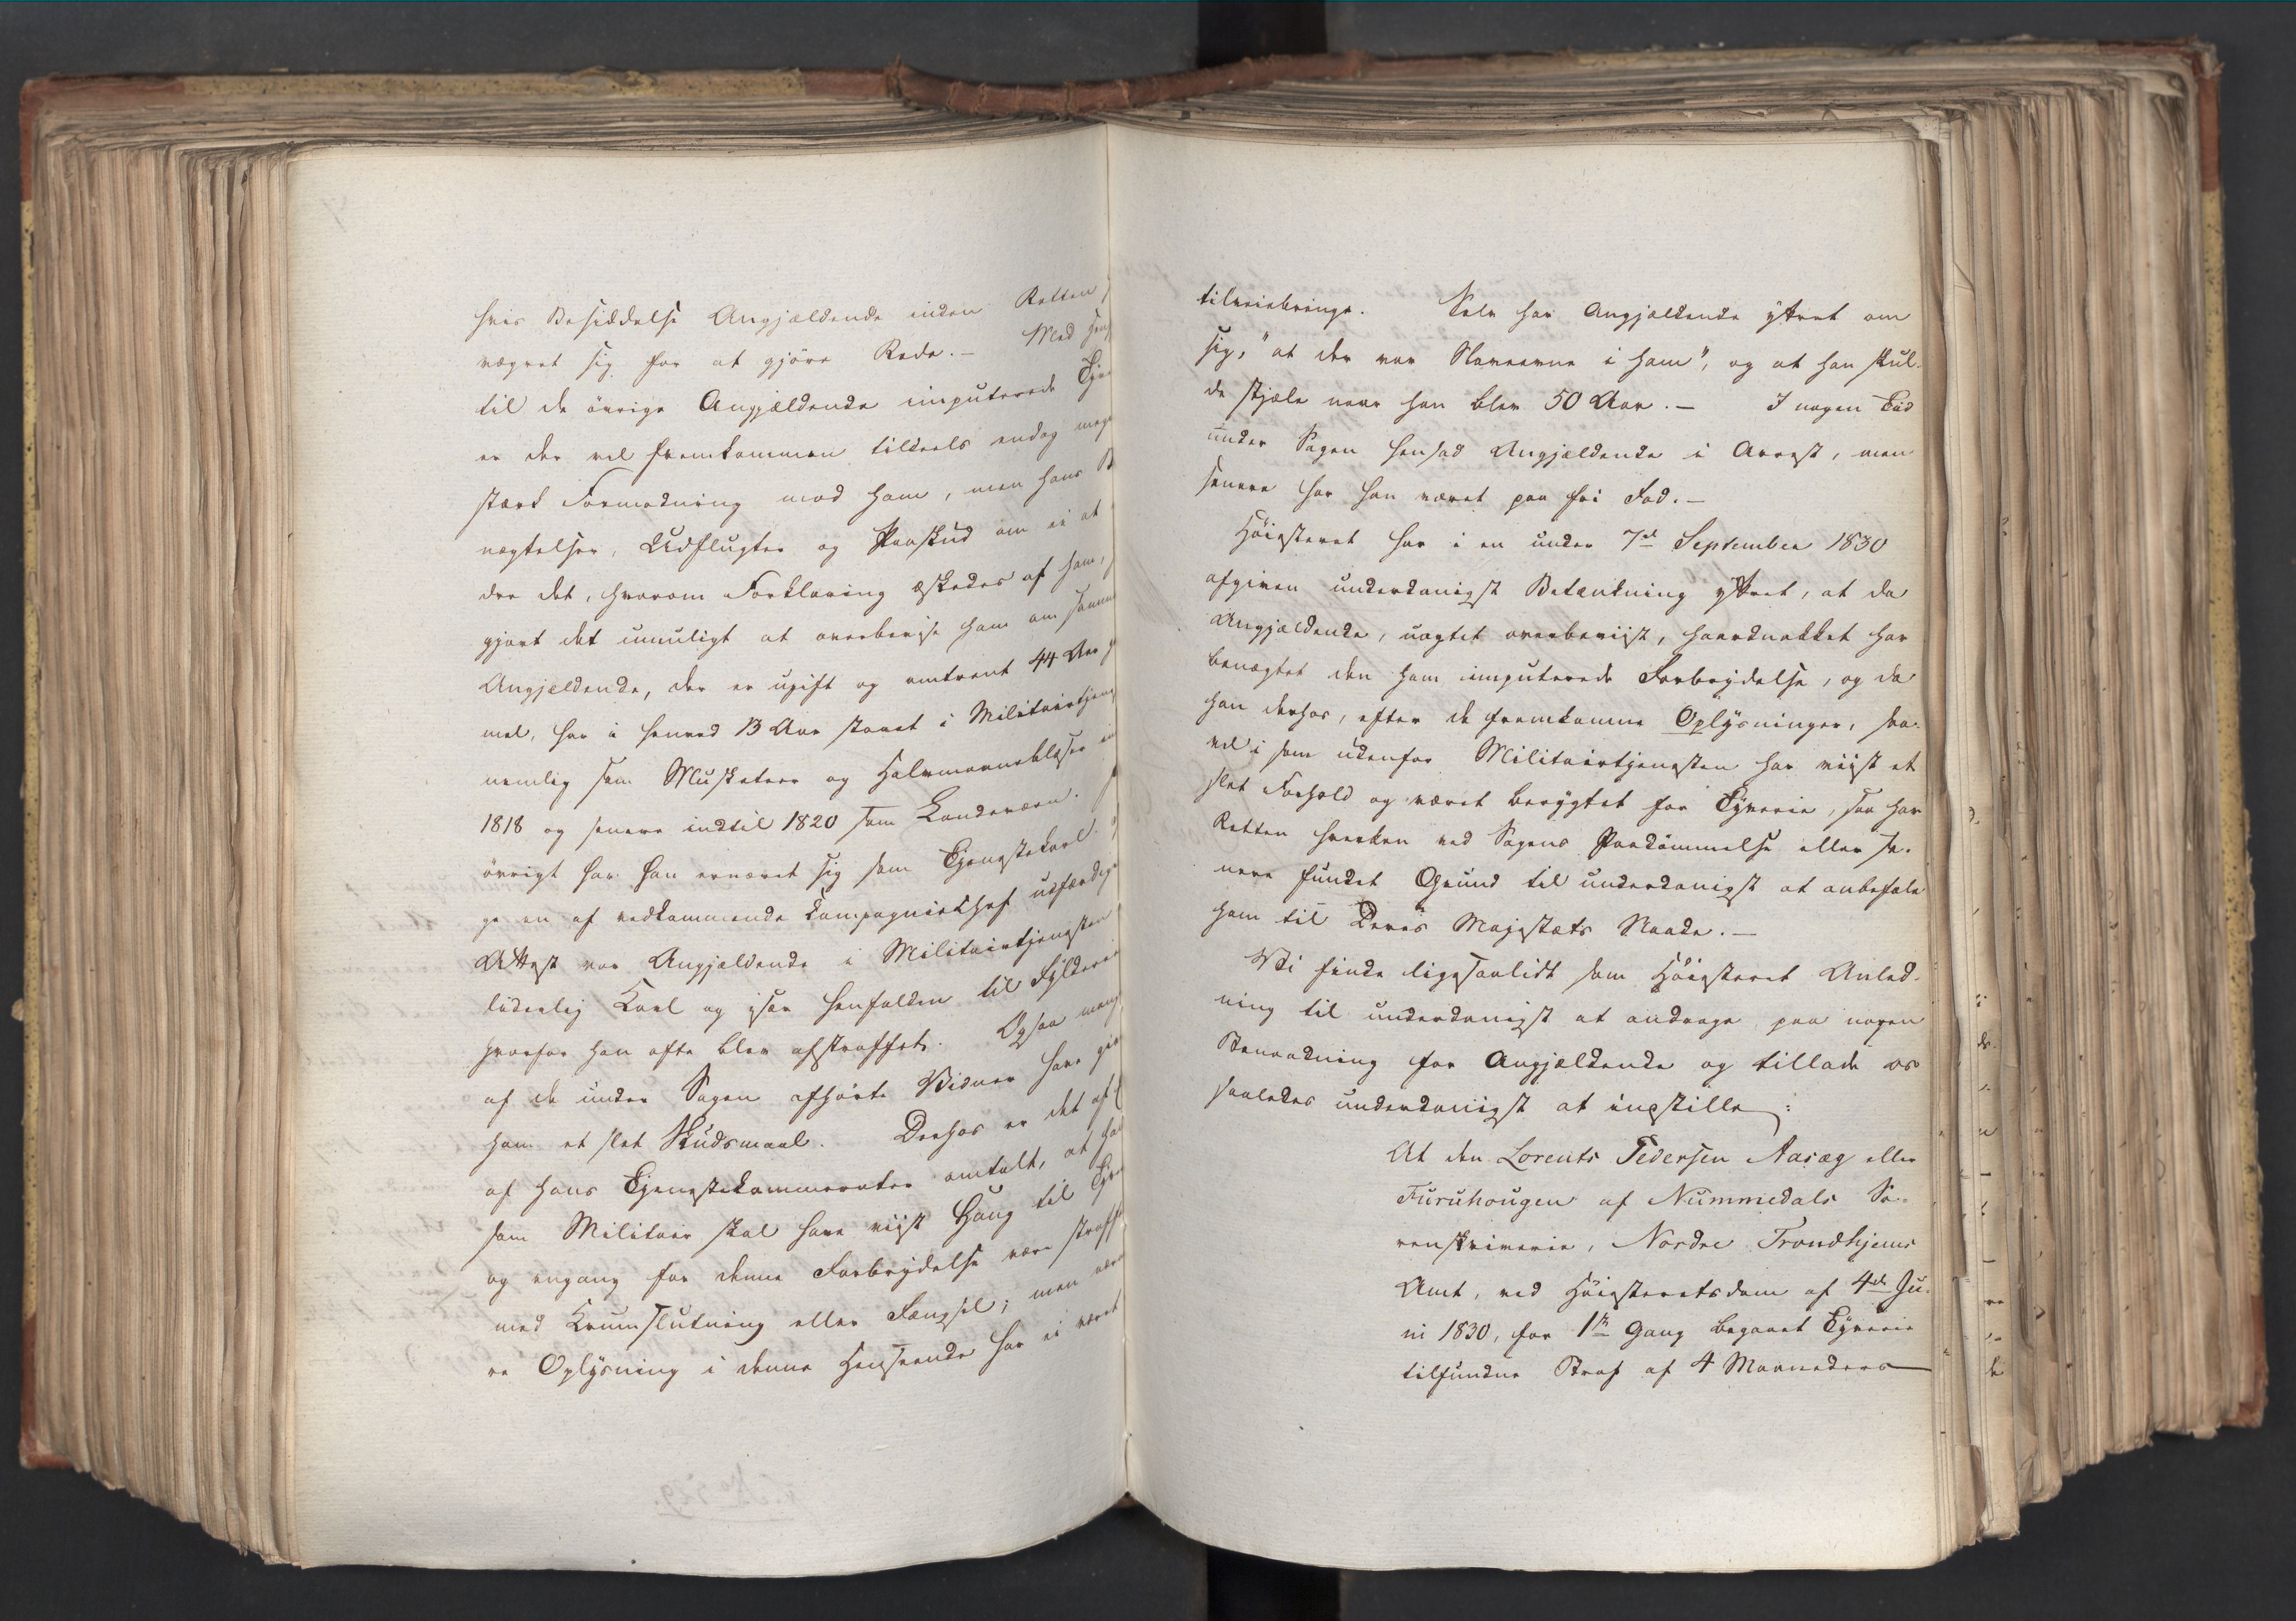 hvis Besiddelse Angjældende inden Retten
vægret sig for at gjöre Rede. – Med
til de övrige Angjældende imputerede
er der vel fremkommen tildeels endog
stærk Formodning mod ham, men hans
nægtelser, Udflugter og Paaskud om ei at
dre det, hvorom Forklaring æskedes af ham,
gjort det umuligt at overbevise ham om
Angjældende, der er ugift og omtrent 44 Aar
mel, har i henved 13 Aar staaet i
nemlig som Musketeer og Halvmaaneblæser
1818 og senere indtil 1820 som Landeværn.
övrigt har han ernæret sig som Tjenestekarl.
ge en af vedkommende Compagniechef
Attest var Angjældende i Militairtjenesten
liderlig Karl og især henfalden til
hvorfor han ofte blev afstraffet. Ogsaa
af de under Sagen afhörte Vidner have
ham et slet Skudsmaal. Derhos er det af
af hans Tjenestekammerater omtalt, at
som Militair skal have viist Hang til
og engang for denne Forbrydelse være
med Krumslutning eller Fængsel; men
re Oplysning i denne Henseende har ei været
tilveiebringe. Selv har Angjældende yttret om
sig, "at der var Slaveevne i ham", og at han skul-
de stjæle naar han blev 50 Aar. – I nogen Tid
under Sagen hensad Angjældende i Arrest, men
senere har han været paa fri Fod. –
Höiesteret har i en under 7de September 1830
afgiven underdanigst Betænkning yttret, at da
Angjældende, uagtet overbeviist, haardnakket har
benægtet den ham imputerede Forbrydelse, og da
han derhos, efter de fremkomne Oplysninger, saa-
vel i som udenfor Militairtjenesten har viist et
slet Forhold og været berygtet for Tyverie, saa har
Retten hverken ved Sagens Paakjömmelse eller se-
nere fundet Grund til underdanigst at anbefale
ham til Deres Majestæts Naade. –
Vi finde ligesaalidt som Höiesteret Anled-
ning til underdanigst at andrage paa nogen
Benaadning for Angjældende og tillade os
saaledes underdanigst at indstille:
At den Lorents Pedersen Aasæg eller
Furuhougen af Nummedals So-
renskriverie, Nordre Trondhjems
Amt, ved Höiesteretsdom af 4de Ju-
ni 1830, for 1ste Gang begaaet Tyverie
tilfundne Straf af 4 Maaneders